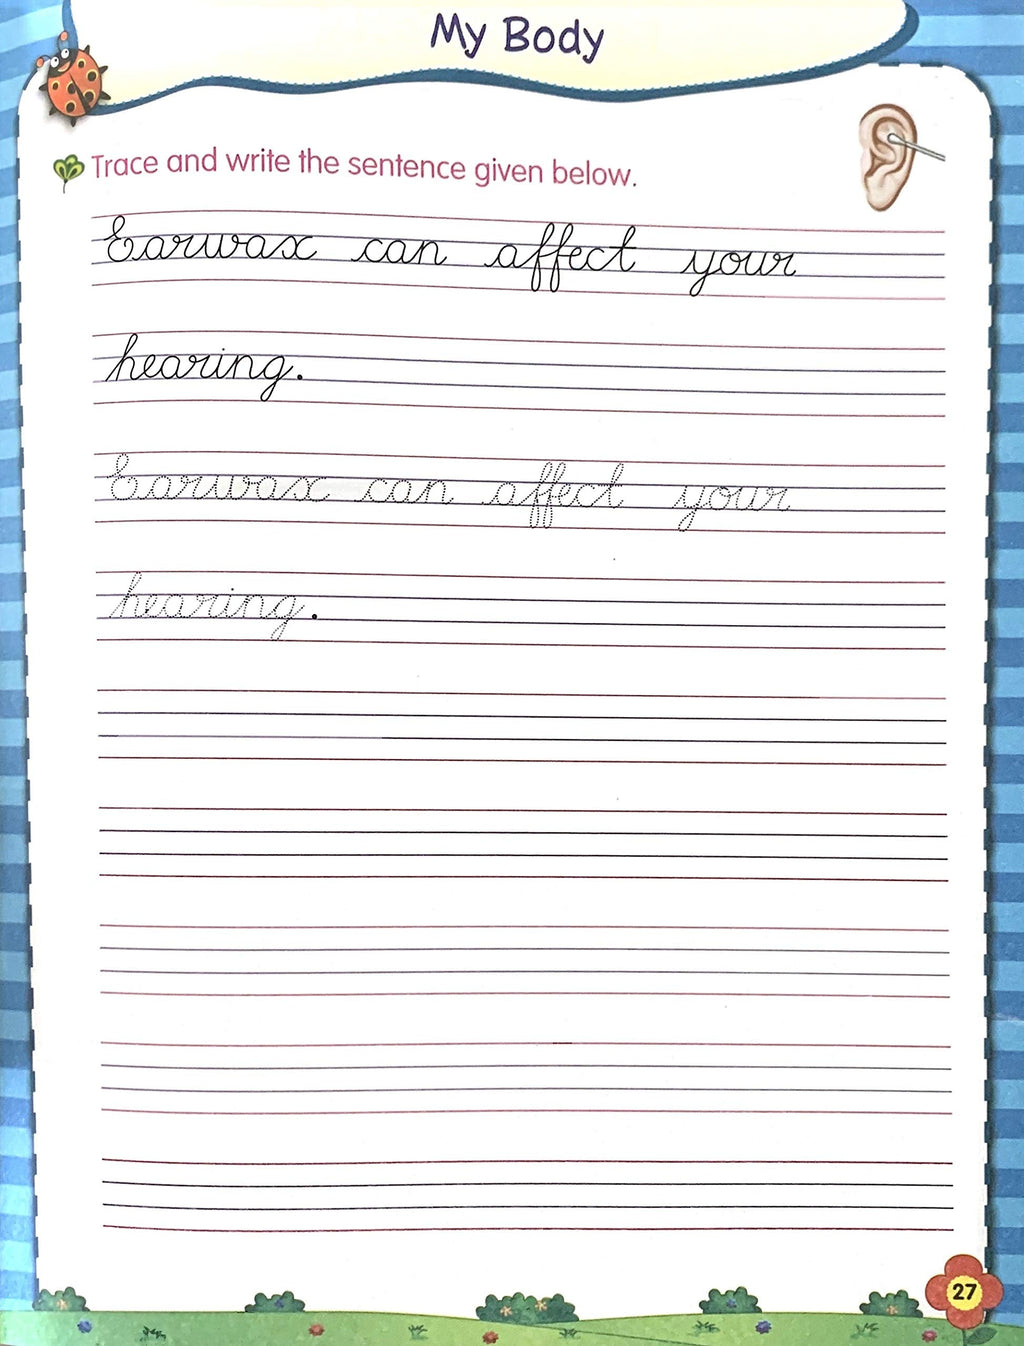 My Body
Trace and write the sentence given below.
Earwax can affect your
hearing.
Earwax can affect your
hearing.
27